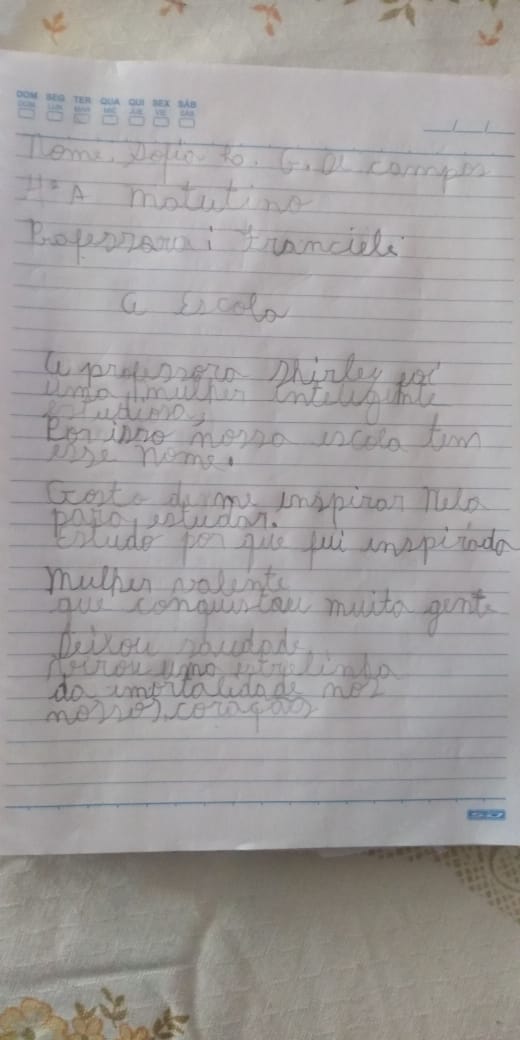 DOM SEG TER QUA QUI SEX SÁB
DOM LUN MAR MIÉ JUE VIE SÁB
Nome, Sofia G. D campos
4º A matutino
Professora; Francieli
A Escola
A professora Shirley foi
uma mulher inteligente
estudiosa,
Por isso nossa escola tem
esse nome.
Gosto de me inspirar nela
para estudar.
Estudo por que fui inspirada
Mulher valente
que conquistou muita gente
Deixou saudade,
virou uma estrelinha
da imortalidade nos
nossos coração